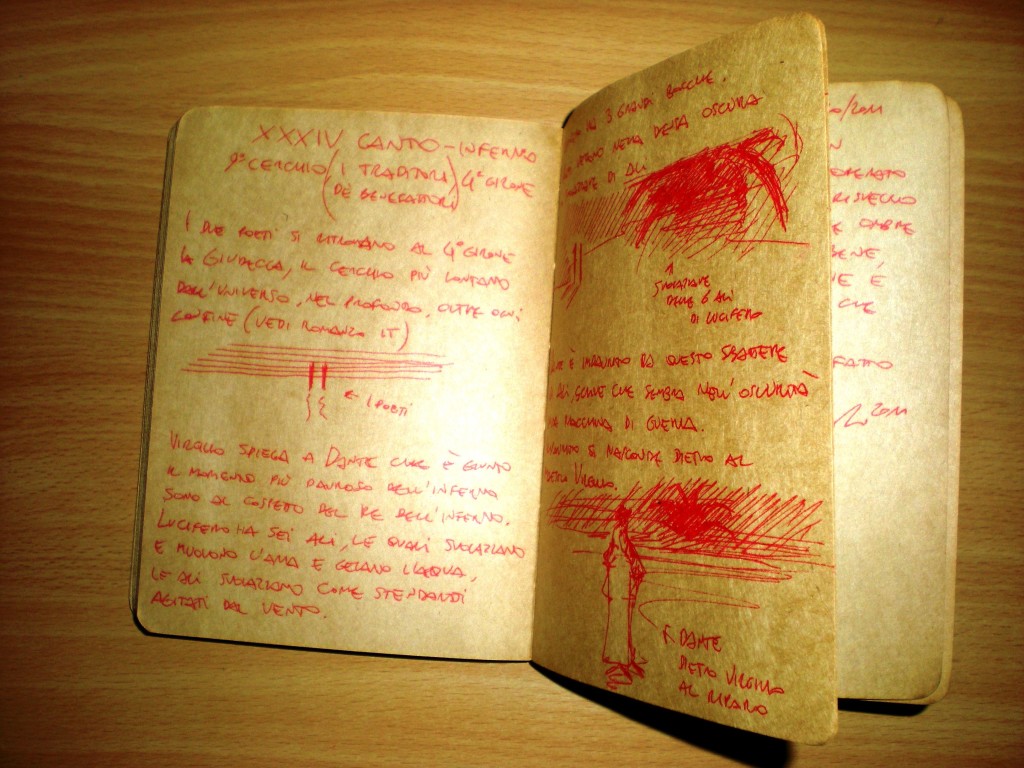 XXXIV CANTO - INFERNO
9° CERCHIO (I TRADITORI) 4° GIRONE
(DE BENEFATTORI)
I DUE POETI SI RITROVANO AL 4° GIRONE
LA GIUDECCA, IL CERCHIO PIÙ LONTANO
DALL'UNIVERSO, NEL PROFONDO, OLTRE OGNI
CONFINE (VEDI ROMANZO IT)
← I POETI
VIRGILIO SPIEGA A DANTE CHE È GIUNTO
IL MOMENTO PIÙ PAUROSO DELL'INFERNO
SONO AL COSPETTO DEL RE DELL'INFERNO.
LUCIFERO HA SEI ALI, LE QUALI SVOLAZZANO
E MUOVONO L'ARIA E GELANO L'ACQUA,
LE ALI SVOLAZZANO COME STENDARDI
AGITATI DAL VENTO.
3 GRANDI BOCCHE.
NELLA DENSA OSCURA
DI ALI
SVOLAZZARE
DELLE 6 ALI
DI LUCIFERO
È IMPAURITO DA QUESTO SBATTERE
ALI CHE SEMBRA NELL'OSCURITÀ
MACCHINA DI GUERRA.
SI NASCONDE DIETRO AL
VIRGILIO.
DANTE
DIETRO VIRGILIO
AL RIPARO
/2011
RISVEGLIO
E OMBRE
BENE,
E È
CHE
FATTO
2011